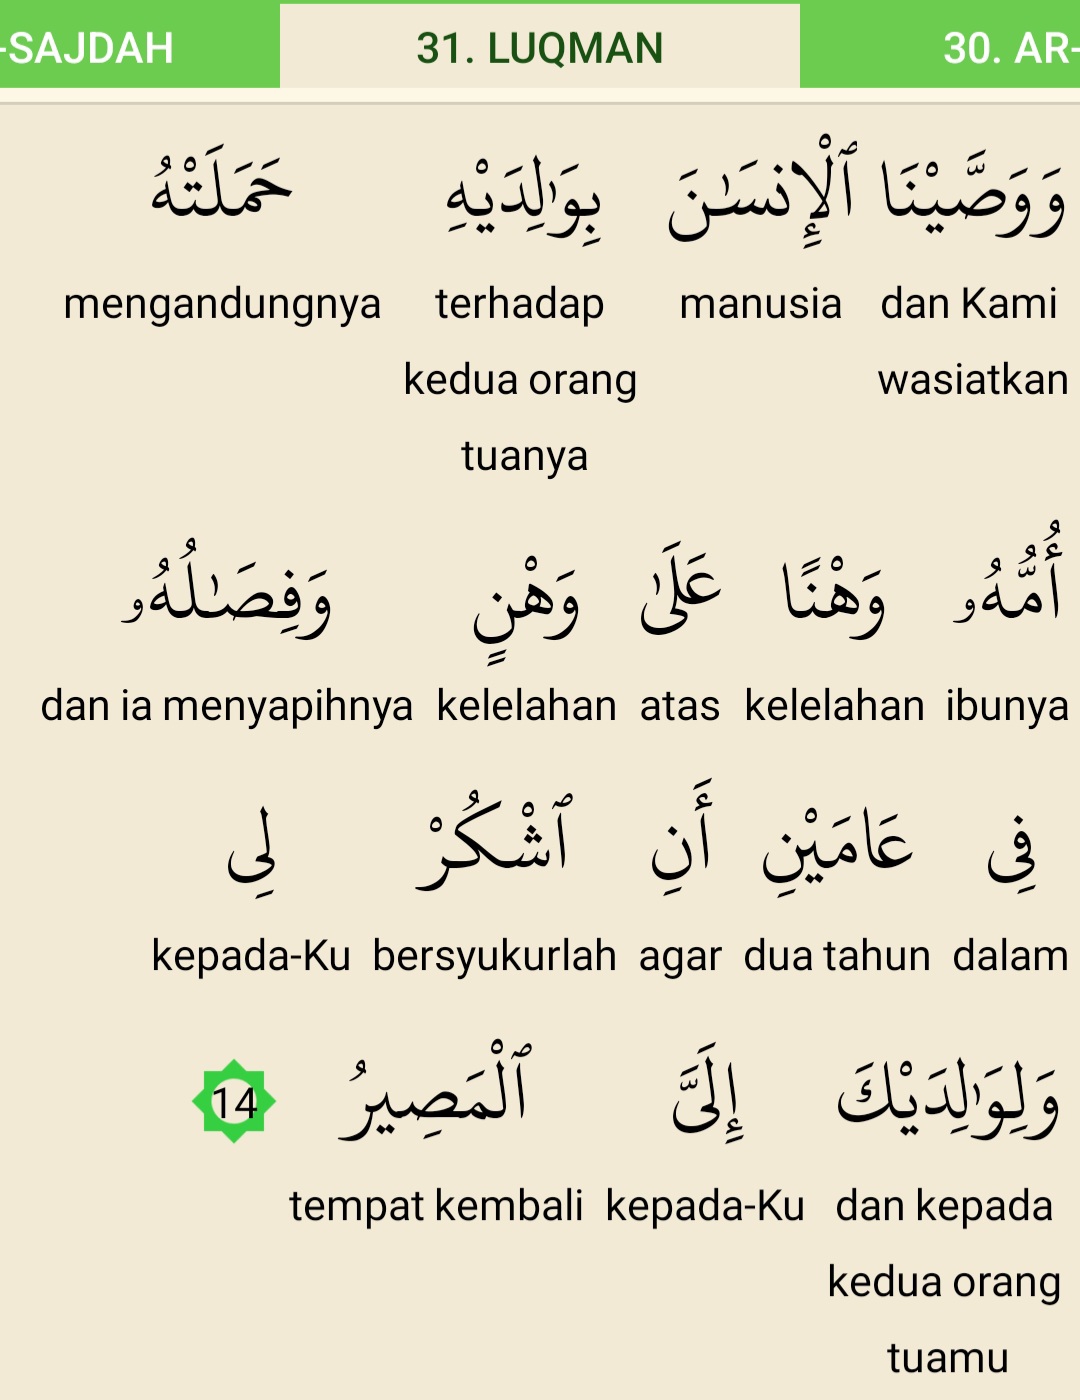 -SAJDAH 31. LUQMAN 30. AR-
وَوَصَّيْنَا ٱلْإِنسَـٰنَ بِوَٰلِدَيْهِ حَمَلَتْهُ
dan Kami manusia terhadap mengandungnya
wasiatkan kedua orang
tuanya
أُمُّهُۥ وَهْنًا عَلَىٰ وَهْنٍ وَفِصَـٰلُهُۥ
ibunya kelelahan atas kelelahan dan ia menyapihnya
فِى عَامَيْنِ أَنِ ٱشْكُرْ لِى
dalam dua tahun agar bersyukurlah kepada-Ku
وَلِوَٰلِدَيْكَ إِلَىَّ ٱلْمَصِيرُ 14
dan kepada kepada-Ku tempat kembali
kedua orang
tuamu